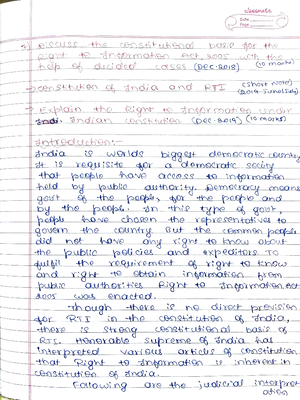 classmate
Date
Page
Discuss the constitutional basis for the
Right to Information Act, 2005 with the
help of decided cases (Dec-2018) (10 marks)
(Short Note)
→ Constitution of India and RTI
→ Explain the Right to Information under
Indian Constitution (Dec-2019) (10 marks)
Introduction:-
India is worlds biggest democratic country
It is requisite for a democratic society
that people have access to information
held by public authority. Democracy means
govt of the people, for the people and
by the people. In this type of govt,
people have chosen the representatives to
govern the country. But the common people
did not have any right to know about
the public policies and expeditors. To
fulfil the requirement of right to know
and right to obtain information from
public authorities Right to Information Act
2005 was enacted.
Though there is no direct provision
for RTI in the constitution of India,
there is strong constitutional basis of
RTI. Honorable supreme of India has
interpreted various articles of constitution
that Right to Information is inherent in
constitution of India.
Following are the judicial interpret
ation